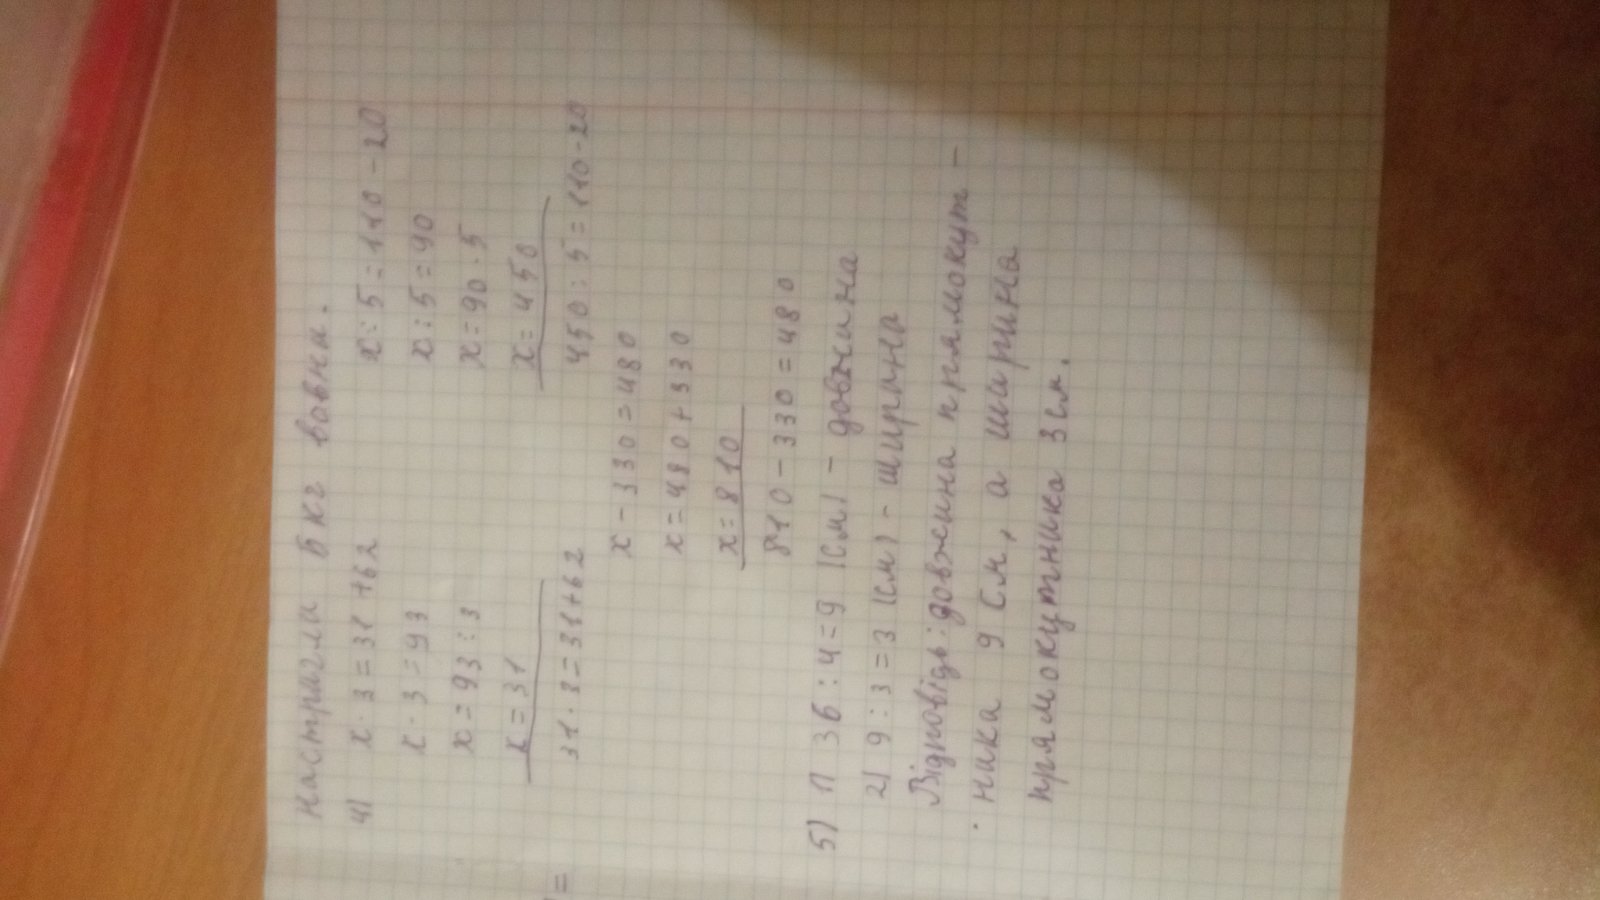 настригли 6 кг вовни.
4) x · 3 = 31 + 62 x : 5 = 110 - 20
x · 3 = 93 x : 5 = 90
x = 93 : 3 x = 90 · 5
x = 31 x = 450
31 · 3 = 31 + 62 450 : 5 = 110 - 20
x - 330 = 480
x = 480 + 330
x = 810
810 - 330 = 480
5) 1) 36 : 4 = 9 (см) - довжина
2) 9 : 3 = 3 (см) - ширина
Відповідь: довжина прямокут-
ника 9 см, а ширина
прямокутника 3 см.